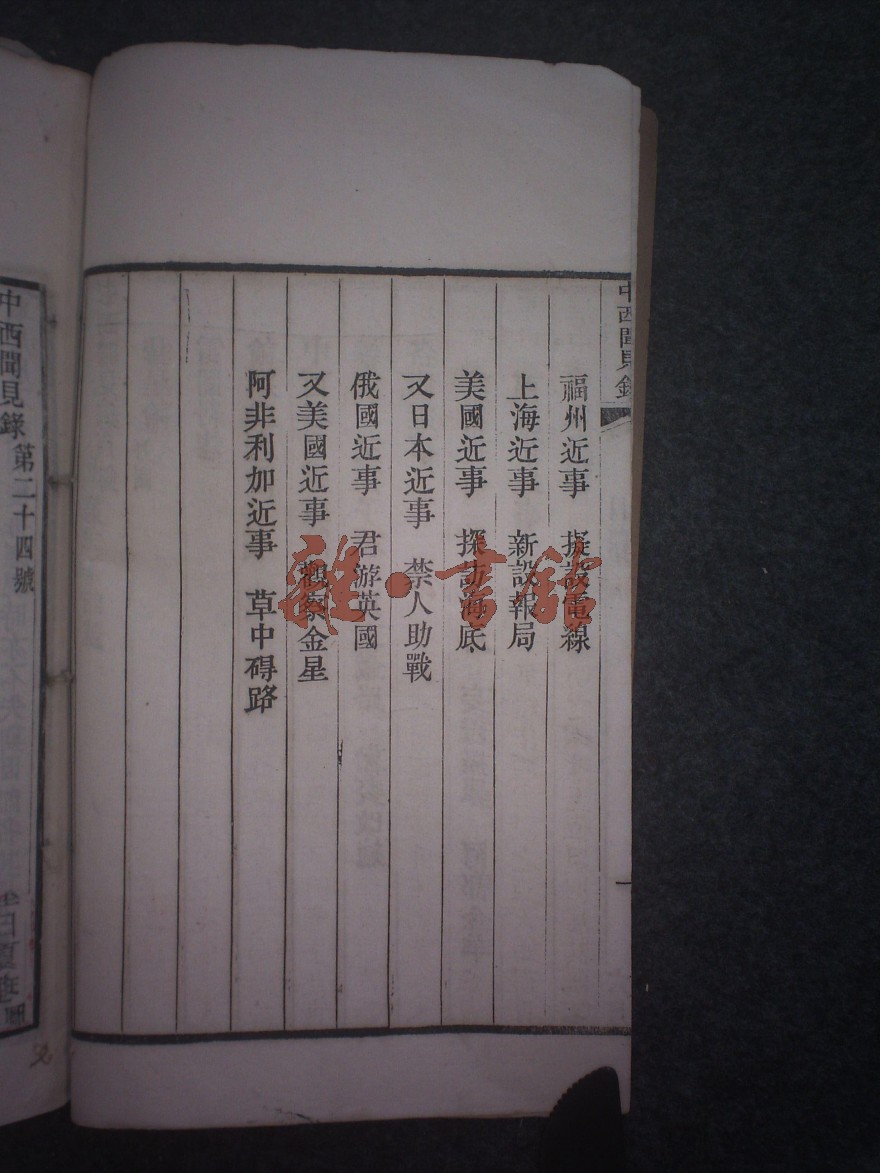 中西聞見錄
福州近事　擬設電線
上海近事　新設報局
美國近事　探訪海底
又日本近事　禁人助戰
俄國近事　君游英國
又美國近事　觀察金星
阿非利加近事　草中碍路
中西聞見錄 第二十四號
雜·書館